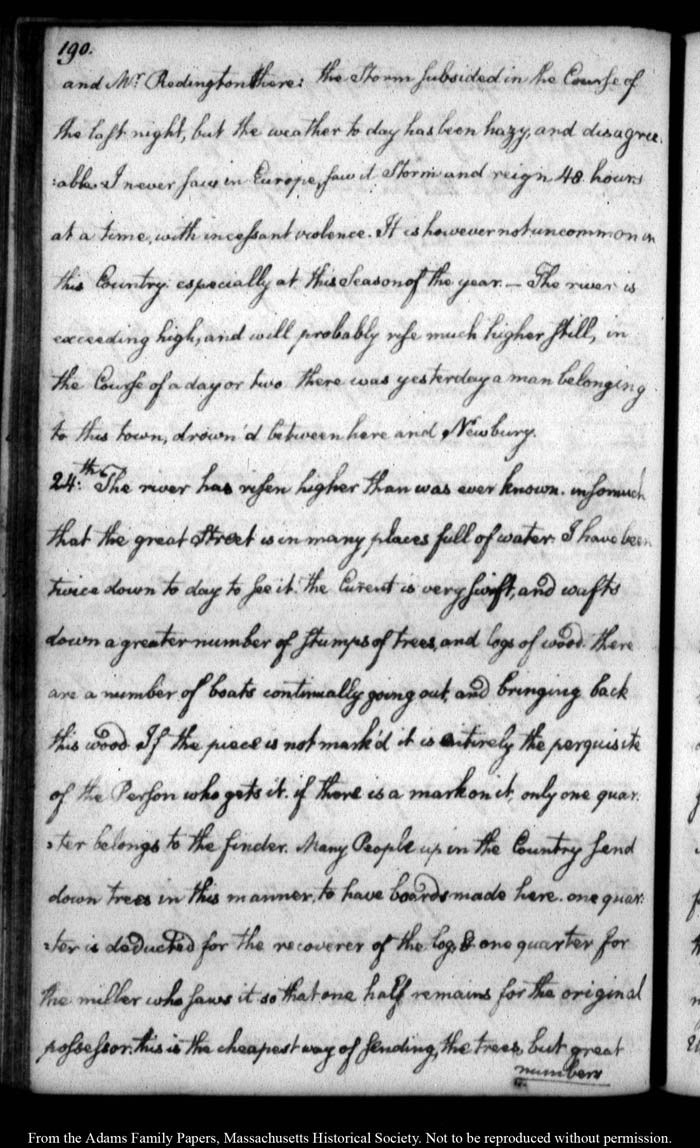 190.
and Mr. Redington there: the Storm subsided in the Course of
the last night, but the weather to day has been hazy, and disagree:
:able. I never saw in Europe, saw it Storm and reign 48 hours
at a time, with incessant violence. It is however not uncommon in
this Country: especially at this Season of the year. — The river is
exceeding high, and will probably rise much higher still, in
the Course of a day or two. there was yesterday a man belonging
to this town, drown'd between here and Newbury.
24th. The river has risen higher than was ever known. insomuch
that the great Street is in many places full of water. I have been
twice down to day to see it. the Current is very swift, and wafts
down a greater number of stumps of trees, and logs of wood. there
are a number of boats continually going out, and bringing back
this wood. If the piece is not mark'd it is entirely the perquisite
of the Person who gets it. if there is a mark on it, only one quar:
:ter belongs to the finder. Many People up in the Country send
down trees in this manner, to have boards made here. one quar:
:ter is deducted for the recoverer of the log, & one quarter for
the miller who saws it so that one half remains for the original
possessor. this is the cheapest way of sending, the trees, but great
numbers
From the Adams Family Papers, Massachusetts Historical Society. Not to be reproduced without permission.